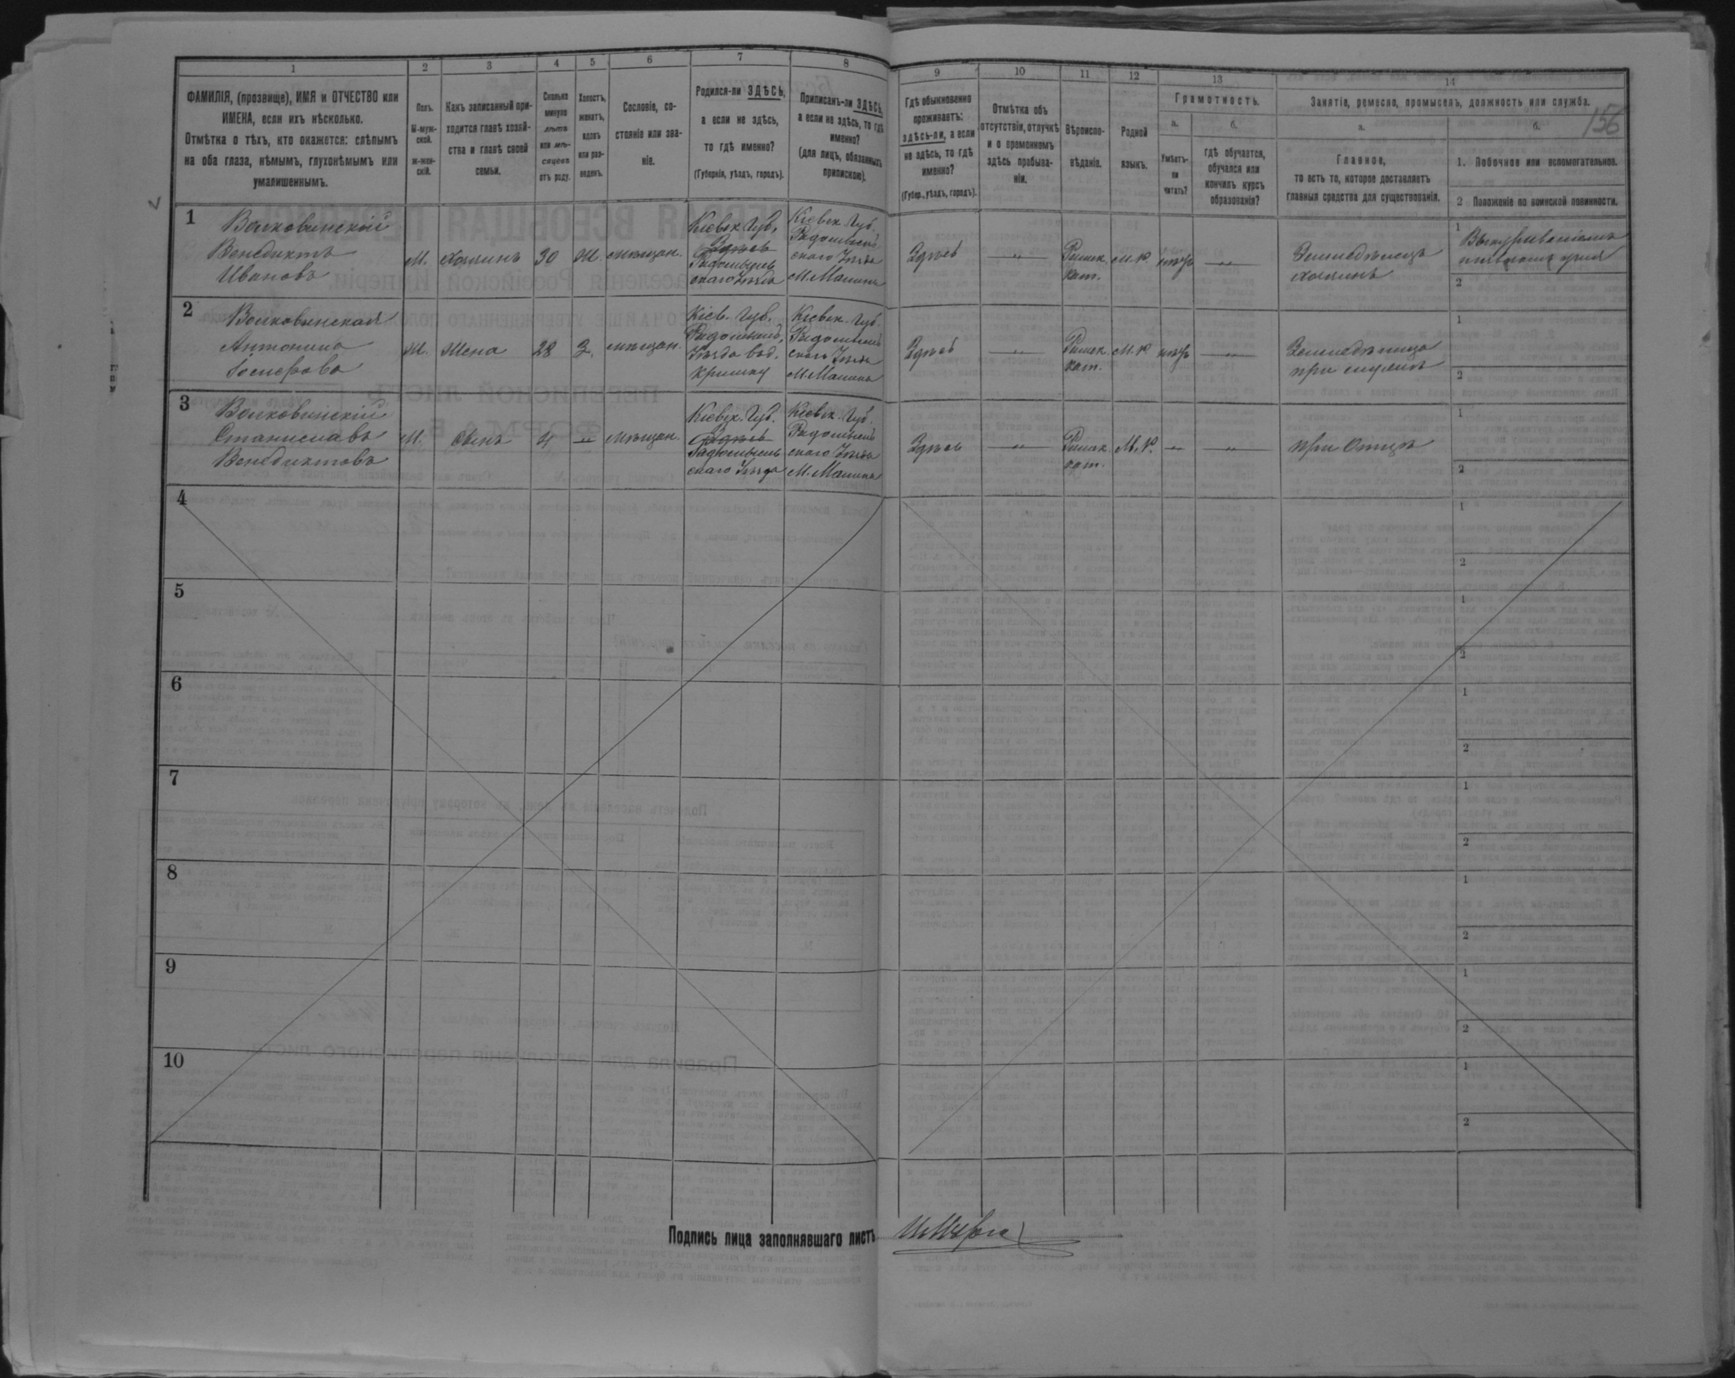 1 2 3 4 5 6 7 8 9 10 11 12 13 14
156
ФАМИЛІЯ, (прозвище), ИМЯ и ОТЧЕСТВО или
ИМЕНА, если ихъ нѣсколько.
Отмѣтка о тѣхъ, кто окажется: слѣпымъ
на оба глаза, нѣмымъ, глухонѣмымъ или
умалишеннымъ.
Полъ.
М-муж-
ской.
ж-жен-
скій.
Какъ записанный при-
ходится главѣ хозяй-
ства и главѣ своей
семьи.
Сколько
минуло
лѣтъ
или мѣ-
сяцевъ
отъ роду.
Холостъ,
женатъ,
вдовъ
или раз-
веденъ.
Сословіе, со-
стояніе или зва-
ніе.
Родился-ли ЗДѢСЬ,
а если не здѣсь,
то гдѣ именно?
(Губернія, уѣздъ, городъ).
Приписанъ-ли ЗДѢСЬ,
а если не здѣсь, то гдѣ
именно?
(для лицъ, обязанныхъ
припискою).
Гдѣ обыкновенно
проживаетъ:
здѣсь-ли, а если
не здѣсь, то гдѣ
именно?
(Губер., уѣздъ, городъ).
Отмѣтка объ
отсутствіи, отлучкѣ
и о временномъ
здѣсь пребыва-
ніи.
Вѣроиспо-
вѣданіе.
Родной
языкъ.
Грамотность.
а.
Умѣетъ-
ли
читать?
б.
гдѣ обучается,
обучался или
кончилъ курсъ
образованія?
Занятіе, ремесло, промыселъ, должность или служба.
а.
Главное,
то есть то, которое доставляетъ
главныя средства для существованія.
б.
1. Побочное или вспомогательное.
2 Положеніе по воинской повинности.
1
Волковинскій
Венедиктъ
Ивановъ
М. Хозяинъ 30 Ж мѣщан.
Кіевск. Губ.
Здѣсь
Радомысль
скаго Уѣзда
Кіевск. Губ.
Радомысль
скаго Уѣзда
М. Малина
Здѣсь —"—
Римск.
кат.
М. Р —"—
Земледѣлецъ
хозяинъ
1
2
2
Волковинская
Антонина
Жена 28 З. мѣщан.
Кіев. Губ.
Кіевск. Губ.
Радомысль
скаго Уѣзда
М. Малина
Здѣсь —"—
Римск.
кат.
М. Р —"—
Земледѣлица
при мужѣ
1
2
3
Волковинскій
Станиславъ
Венедиктовъ
М. Сынъ 4 —"— мѣщан.
Кіевск. Губ.
Здѣсь
Радомысль
скаго Уѣзда
Кіевск. Губ.
Радомысль
скаго Уѣзда
М. Малина
Здѣсь —"—
Римск.
кат.
М. Р. —"— —"—
при Отцѣ
1
2
4
1
2
5
1
2
6
1
2
7
1
2
8
1
2
9
1
2
10
1
2
Подпись лица заполнявшаго листъ